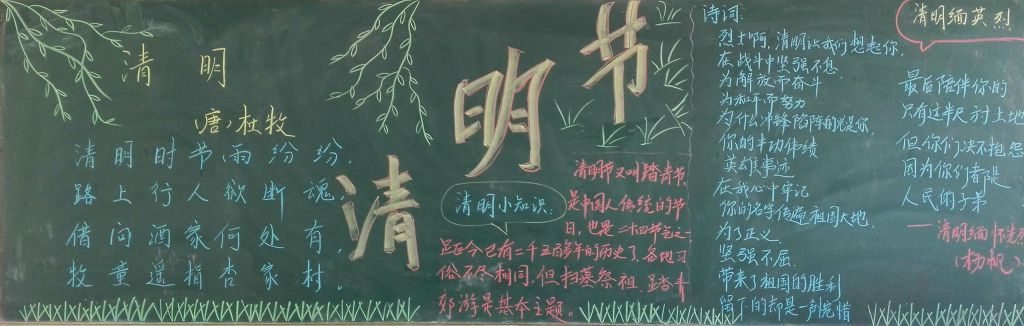 清明
(唐)杜牧
清明时节雨纷纷,
路上行人欲断魂。
借问酒家何处有,
牧童遥指杏家村。
清明节
清明小知识:
清明节又叫踏青节,
是中国人传统的节
日,也是二十四节气之一
距今已有二千五百多年的历史了,各地习
俗不尽相同,但扫墓祭祖、踏青
郊游是基本主题。
诗词:
清明缅英烈
烈士啊,清明让我们想起你,
在战斗中坚强不息,
为解放而奋斗
为和平而努力
为什么冲锋陷阵的总是你,
你的丰功伟绩
英雄事迹
在我心中牢记
你的名字传遍祖国大地
为了正义,
坚强不屈,
带来了祖国的胜利
留下的却是一声惋惜
最后陪伴你的
只有这半尺方寸土地
但你们决不抱怨
因为你们都是
人民的子弟
——清明缅怀先烈
(杨帆)